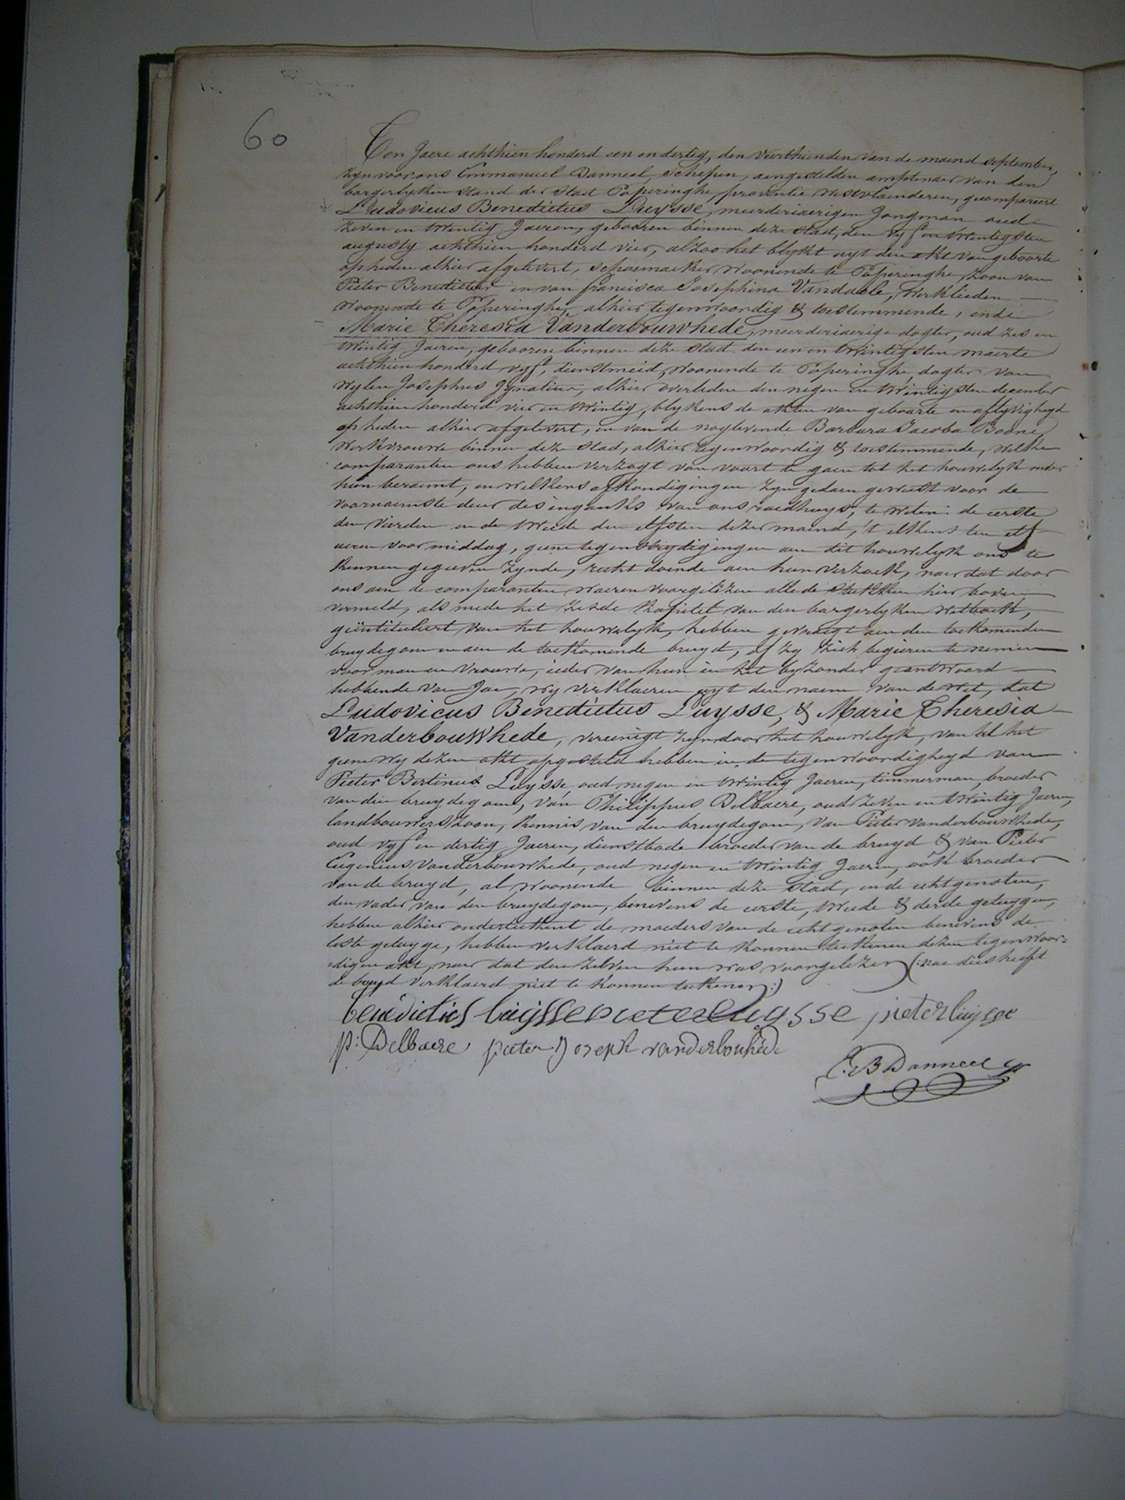 60
Ten Jaere achthien honderd een en dertig, den veerthienden van de maend september,
zyn voor ons Emmanuel Danneel, schepen, aengestelden amptenaer van den
borgerlyken stand der Stad Poperinghe, provintie westvlaenderen, gecompareert
Ludovicus Benedictus Luysse, meerderjaerigen Jongman oud
zeven en twintig Jaeren, gebooren binnen deze stad, den vyf en twintigsten
augusty achthien honderd vier, alzoo het blykt uyt den akt van geboorte
op heden alhier afgelevert, schoemaeker, woonende te Poperinghe, zoon van
Pieter Benedictus en van francisca Josephina Vandaele, werklieden
woonende te Poperinghe, alhier tegenwoordig & toestemmende, ende
Marie Theresia Vanderbouwhede, meerderjaerige dogter, oud zes en
twintig Jaeren, gebooren binnen deze stad den een en twintigsten maerte
achthien honderd vyf, dienstmeid, woonende te Poperinghe, dogter van
wylen Josephus Ignatius, alhier overleden den negen en twintigsten december
achthien honderd vier en twintig, blykens de akten van geboorte en aflyvigheyd
op heden alhier afgelevert, en van de naylevende Barbara Jacoba Boone
werkvrouwe binnen deze stad, alhier tegenwoordig & toestemmende, welke
comparanten ons hebben verzogt van voort te gaen tot het houwelyk onder
hun beraemt, en welkens afkondigingen zyn gedaen geweest voor de
voornaemste deur des ingank's van ons raedhuys, te weten: de eerste
den vierden en de tweede den elfsten dezer maend, 't elkens ten elf
ueren voor middag, geene tegenstrydigingen aen dit houwelyk ons te
kennen gegeven zynde, recht doende aen hun verzoek, naer dat door
ons aen de comparanten waeren voorgelezen alle de stukken hier boven
vermeld, als mede het zesde kapitel van den borgerlyken wetboek,
geintituleert van het houwelyk, hebben gevraegt aen den toekomenden
bruydegom en aen de toekomende bruyd, of zy zich begeeren te nemen
voor man en vrouwe, ieder van hun in het byzonder geantwoord
hebbende van Jae, wy verklaeren uyt den naem van de wet, dat
Ludovicus Benedictus Luysse, & Marie Theresia
Vanderbouwhede, vereenigt zyn door het houwelyk, van al het
gene wy dezen akt opgesteld hebben in de tegenwoordigheyd van
Pieter Bertinus Luysse, oud negen en twintig Jaeren, timmerman, broeder
van den bruydegom, van Philippus Delbaere, oud zeven en twintig Jaeren,
landbouwers zoon, kennis van den bruydegom, van Pieter Vanderbouwhede,
oud vyf en dertig Jaeren, dienstbode broeder van de bruyd & van Pieter
Eugenius Vanderbouwhede, oud negen en twintig Jaeren, oôk broeder
van de bruyd, al woonende binnen deze stad, en de echtgenoten,
den vader van den bruydegom, benevens de eerste, tweede & derde getuygen,
hebben alhier onderteekent de moeders van de echtgenoten benevens de
leste getuyge, hebben verklaerd niet te konnen teekenen dezen tegenwoor-
digen akt, naer dat den zelven hun was voorgelezen (: nae dies heeft
de bruyd verklaerd niet te konnen teekenen :)
benedictus luijsse pieter luysse pieter luijsse
p: Delbaere pieter Joseph vanderbouhede
E: B Danneel